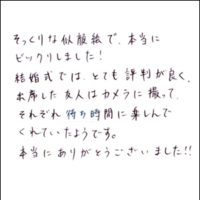 そっくりな似顔絵で、本当に
ビックリしました!
結婚式では、とても評判が良く、
出席した友人はカメラに撮って、
それぞれ待ち時間に楽しんで
くれていたようです。
本当にありがとうございました!!